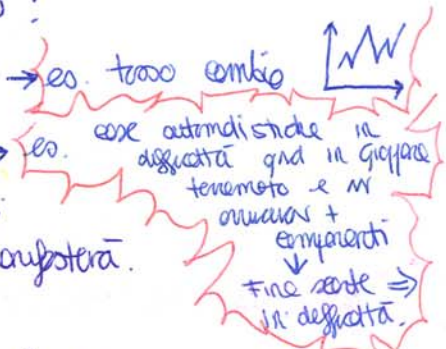 → es. tasso cambio
→ es. case automobilistiche in
difficoltà qnd in Giappone
terremoto e nn
arrivavano +
componenti
↓
Fine scorte ⇒
in difficoltà.